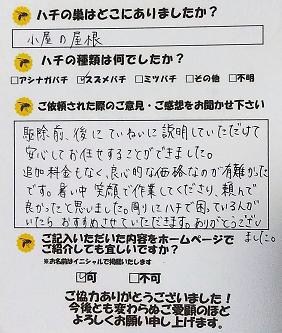 ハチの巣はどこにありましたか？
小屋の屋根
ハチの種類は何でしたか？
□アシナガバチ ☑スズメバチ □ミツバチ □その他 □不明
ご依頼された際のご意見・ご感想をお聞かせ下さい
駆除前、後にていねいに説明していただけて
安心してお任せすることができました。
追加料金もなく、良心的な価格なのが有難かった
です。暑い中 笑顔で作業してくださり、頼んで
良かったと思いました。周りにハチで困っている人が
いたら おすすめさせていただきます。ありがとうござい
ました。
ご記入いただいた内容をホームページで
ご紹介しても宜しいですか？
※お名前はイニシャルで掲載いたします
☑可 □不可
ご協力ありがとうございました！
今後とも変わらぬご愛顧のほど
よろしくお願い申し上げます。